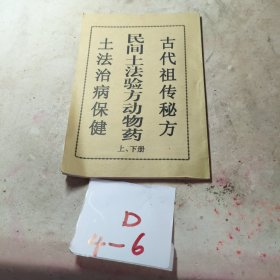 古代祖传秘方
民间土法验方动物药
上、下册
土法治病保健
D
4-6